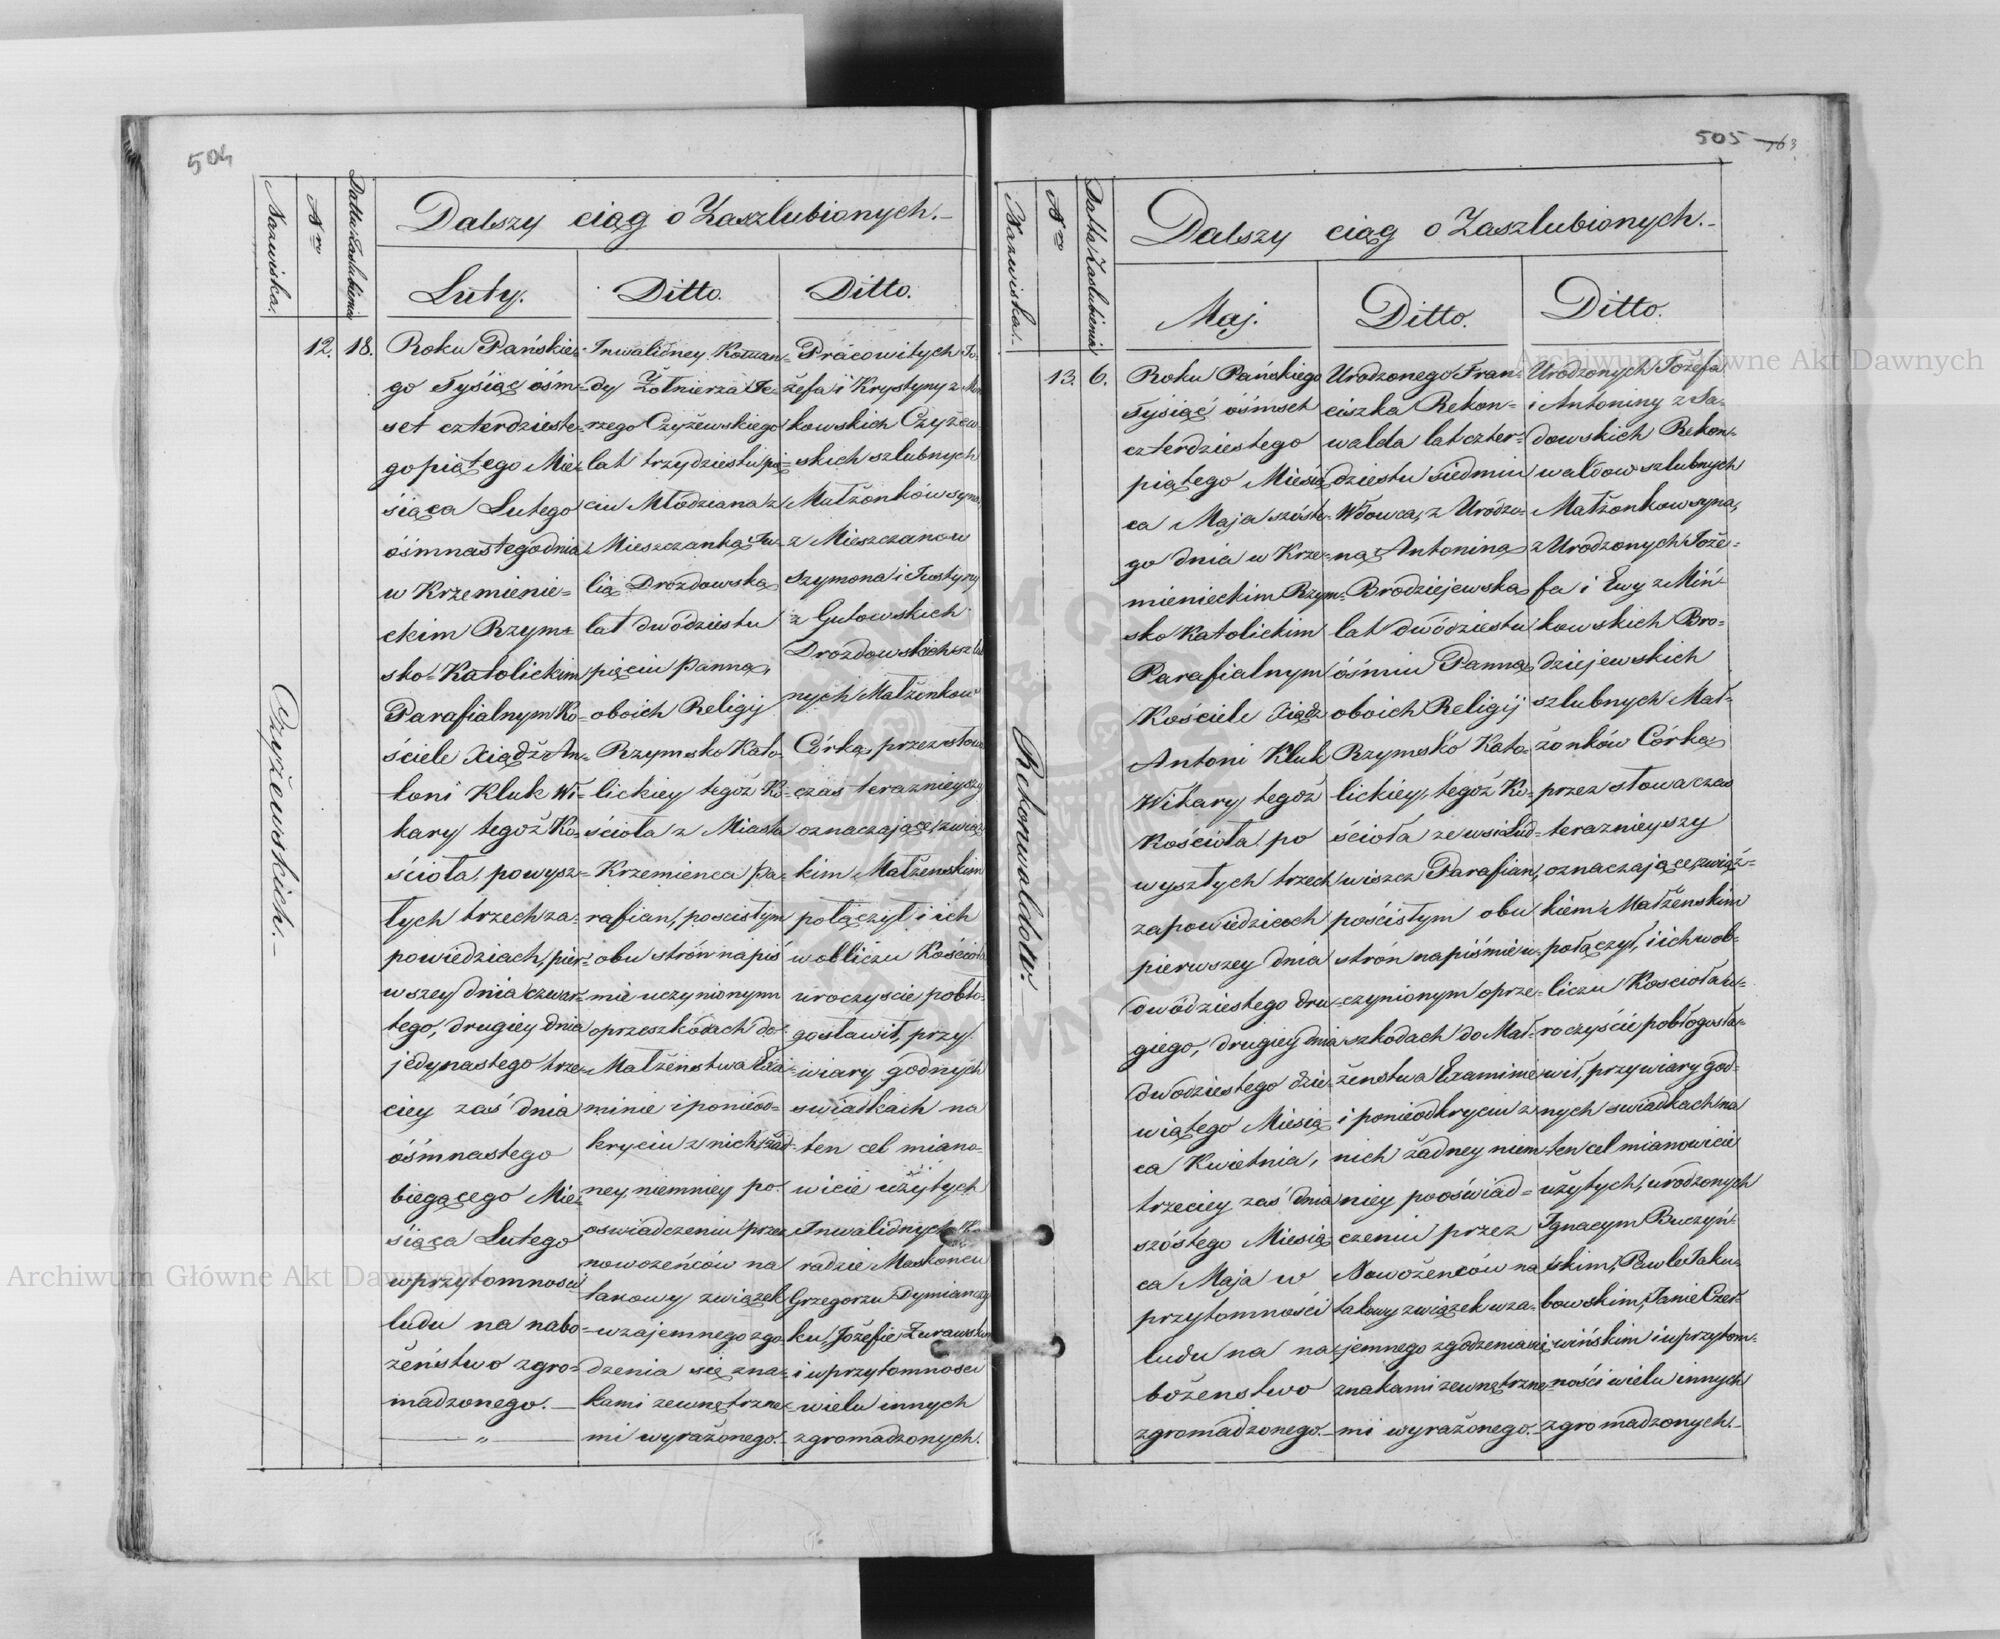 504
Nazwiska.
Nro
Datta Zaślubienia
Dalszy ciąg o Zaszlubionych.
Luty.
Ditto.
Ditto.
12.
18.
Czyżewskich.
Roku Pańskie-
go Tysiąc óśm-
set czterdzieste-
go piątego Mie-
śiąca Lutego
óśmnastego dnia
w Krzemienie-
ckim Rzym-
sko-Katolickim
Parafialnym Ko-
ściele Xiądz An-
toni Kluk Wi-
kary tegoż Ko-
ścioła, powysz-
łych trzech za-
powiedziach, pier-
wszey dnia czwar-
tego, drugiey dnia
jedynastego trze-
ciey zaś dnia
óśmnastego
biegącego Mie-
śiąca Lutego
w przytomności
ludu na nabo-
żeństwo zgro-
madzonego.
Inwalidney Koman-
dy Żołnierza Je-
rzego Czyżewskiego
lat trzydziestu pię-
ciu Młodziana z
Mieszczanką Ju-
lią Drozdowską
lat dwódziestu
pięciu Panną,
oboich Religij
Rzymsko Kato-
lickiey tegoż Ko-
ścioła z Miasta
Krzemienca Pa-
rafian, poscisłym
obu strón na piś
mie uczynionym
oprzeszkódach do
Małżeństwa Exa-
minie i ponieod-
kryciu z nich żad-
ney, niemniey po
oswiadczeniu przez
nowożeńców na
takowy związek
wzajemnego zgo-
dzenia się zna-
kami zewnętrzne-
mi wyrażonego.
Pracowitych Jó-
żefa i Krystyny z
kowskich Czyżew-
skich szlubnych
Małżonków syna,
z Mieszczanow
Szymona i Justyny
z Gutowskich
Drozdowskich szlub
nych Małżonkow
Córką, przez słowa
czas teraznieyszy
oznaczające, związ
kim Małżenskim
połączył i ich
w obliczu Kościoła
uroczyscie pobło-
gosławił, przy
wiary godnych
swiadkach na
ten cel miano-
wicie użytych
Inwalidnych
radzie Moskoncu
Grzegorzu Dymianczy
ku, Józefie Żurawskim
i w przytomnosci
wielu innych
zgromadzonych.
505
763
Nazwiska.
Nro
Datta Zaslubienia
Dalszy ciąg o Zaszlubionych.
Maj.
Ditto.
Ditto.
13.
6.
Rekonwaldow.
Roku Pańskiego
Tysiąć óśmset
czterdziestego
piątego Miesią
ca Maja szóste-
go dnia w Krze-
mienieckim Rzym-
sko Katolickim
Parafialnym
Kościele Xiądz
Antoni Kluk
Wikary tegoż
Kościoła, po
wyszłych trzech
zapowiedziach
pierwszey dnia
dwódziestego dru-
giego, drugiey dnia
dwódziestego dzie-
wiątego Miesią-
ca Kwietnia,
trzeciey zaś dnia
szóstego Miesią
ca Maja w
przytomności
ludu na na-
bożenstwo
zgromadzonego.
Urodzonego Fran-
ciszka Rekon-
walda lat czter-
dziestu siedmiu
Wdowca, z Urodzo-
ną Antoniną
Brodziejewską
lat dwódziestu
óśmiu Panną
oboich Religij
Rzymsko Kato-
lickiey, tegoż Ko-
ścioła ze wsi Lud-
wiszcz Parafian,
pościsłym obu
strón na piśmie u-
czynionym oprze-
szkodach do Mał-
żenstwa Examinie
i ponieodkryciu z
nich żadney niem-
niey pooświad-
czeniu przez
Nowożeńców na
takowy związek wza-
jemnego zgodzenia się
znakami zewnętrzne-
mi wyrażonego.
Urodzonych Józefa
i Antoniny z Sa-
dowskich Rekon-
waldow szlubnych
Małżonkow syna,
z Urodzonych Józe-
fa i Ewy z Miń-
kowskich Bro-
dziejewskich
szlubnych Mał-
żonków Córką
przez słowa czas
teraznieyszy
oznaczające, związ-
kiem Małżenskim
połączył, i ich w ob-
liczu Koscioła u-
roczyście pobłogosła-
wił, przy wiary god-
nych swiadkach na
ten cel mianowicie
użytych, urodzonych
Ignacym Buczyń-
skim, Pawle Jaku-
bowskim, Janie Czer-
wińskim i w przytom-
ności wielu innych
zgromadzonych.
Archiwum Główne Akt Dawnych
Archiwum Główne Akt Dawnych